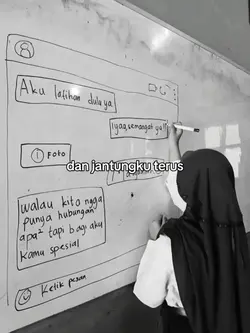 Aku latihan dulu ya
Iyaa, semangat ya!!
1 Foto
dan jantungku terus
walau kita ngga
punya hubungan
apa² tapi bagi aku
kamu spesial
Ketik pesan